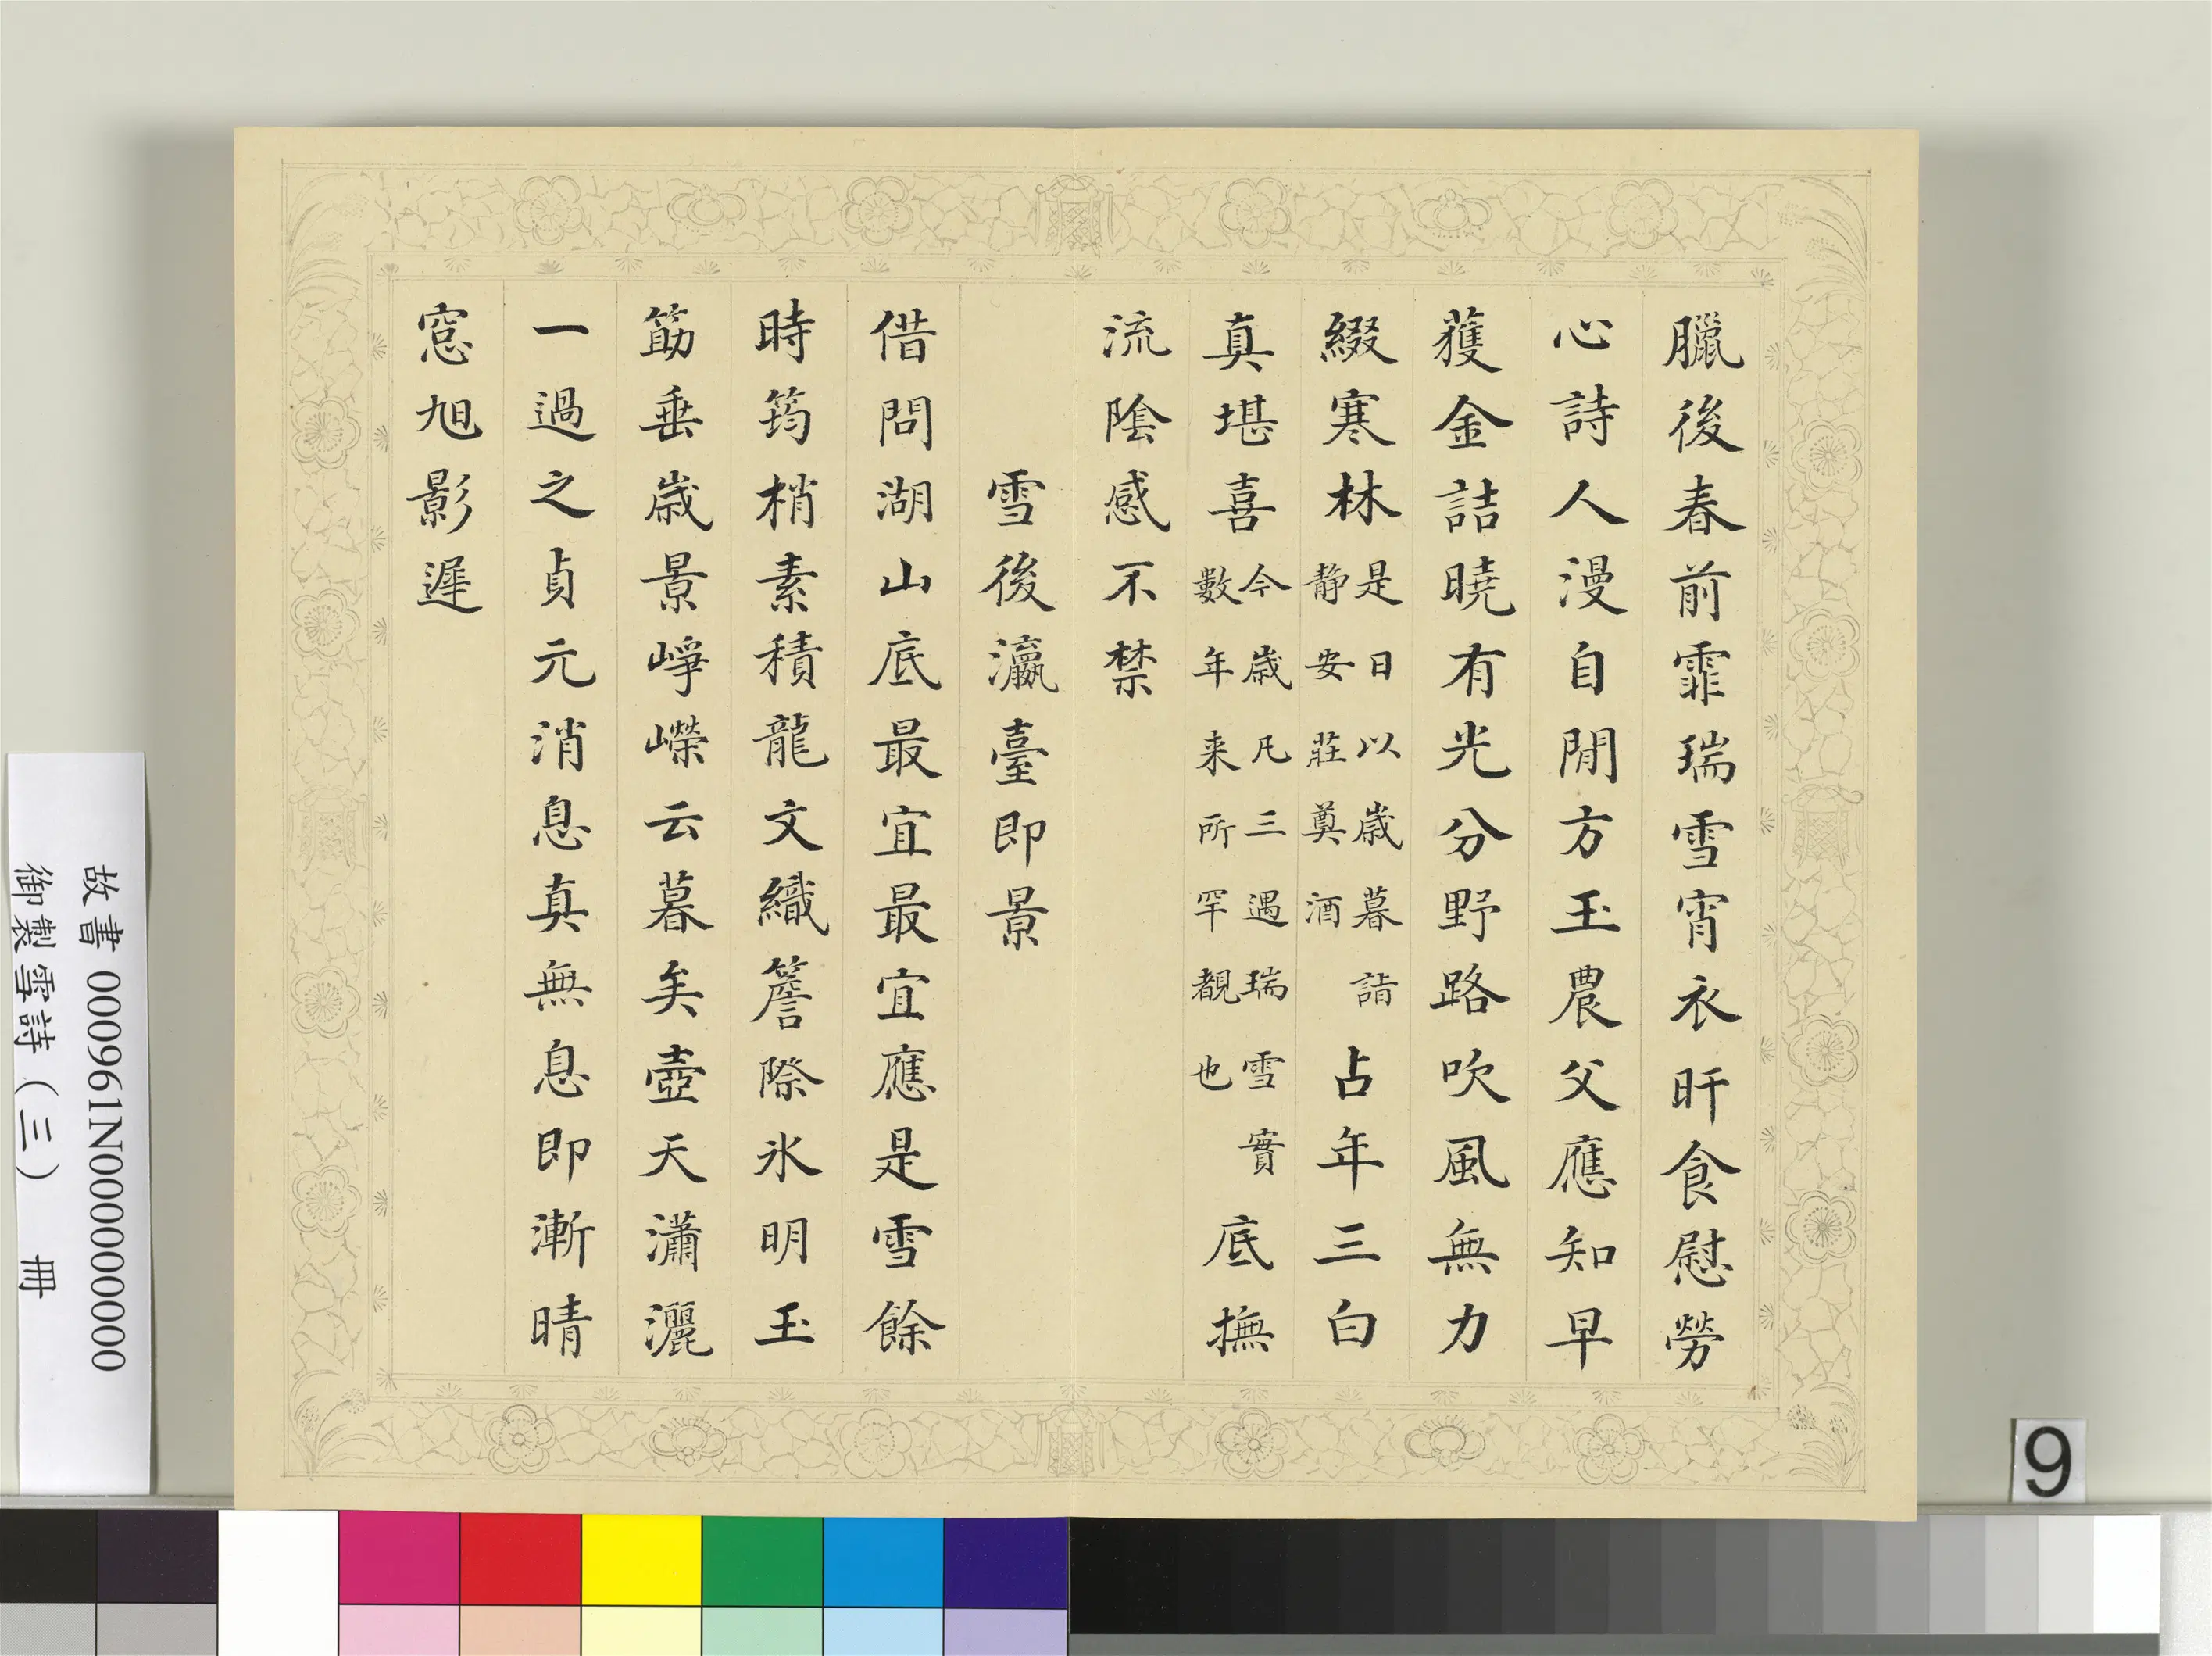 臘後春前霏瑞雪宵衣旰食慰勞
心詩人漫自閒方玉農父應知早
獲金詰曉有光分野路吹風無力
綴寒林是日以歲暮詣靜安莊奠酒占年三白
真堪喜今歲凡三遇瑞雪實數年来所罕覩也底撫
流陰感不禁
雪後瀛臺即景
借問湖山底最宜最宜應是雪餘
時筠梢素積龍文織簷際氷明玉
筯垂歲景崢嶸云暮矣壺天瀟灑
一過之貞元消息真無息即漸晴
窓旭影遲
故書 000961N000000000
御製雪詩（三） 冊
9